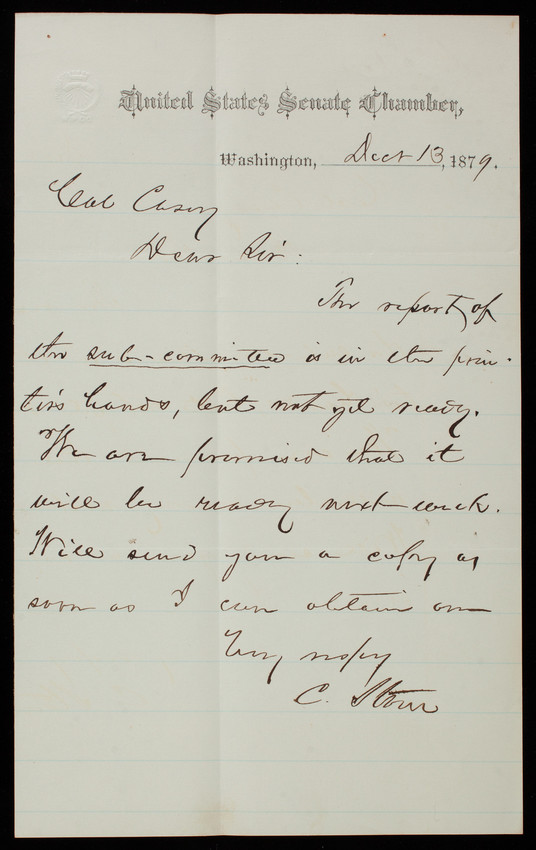 United States Senate Chamber,
Washington, Dect 13, 1879.
Col Casey
Dear Sir:
The report of
the sub-committee is in the prin-
ter's hands, but not yet ready.
We are promised that it
will be ready next week.
Will send you a copy as
soon as I can obtain one
Very respy
C. Stone